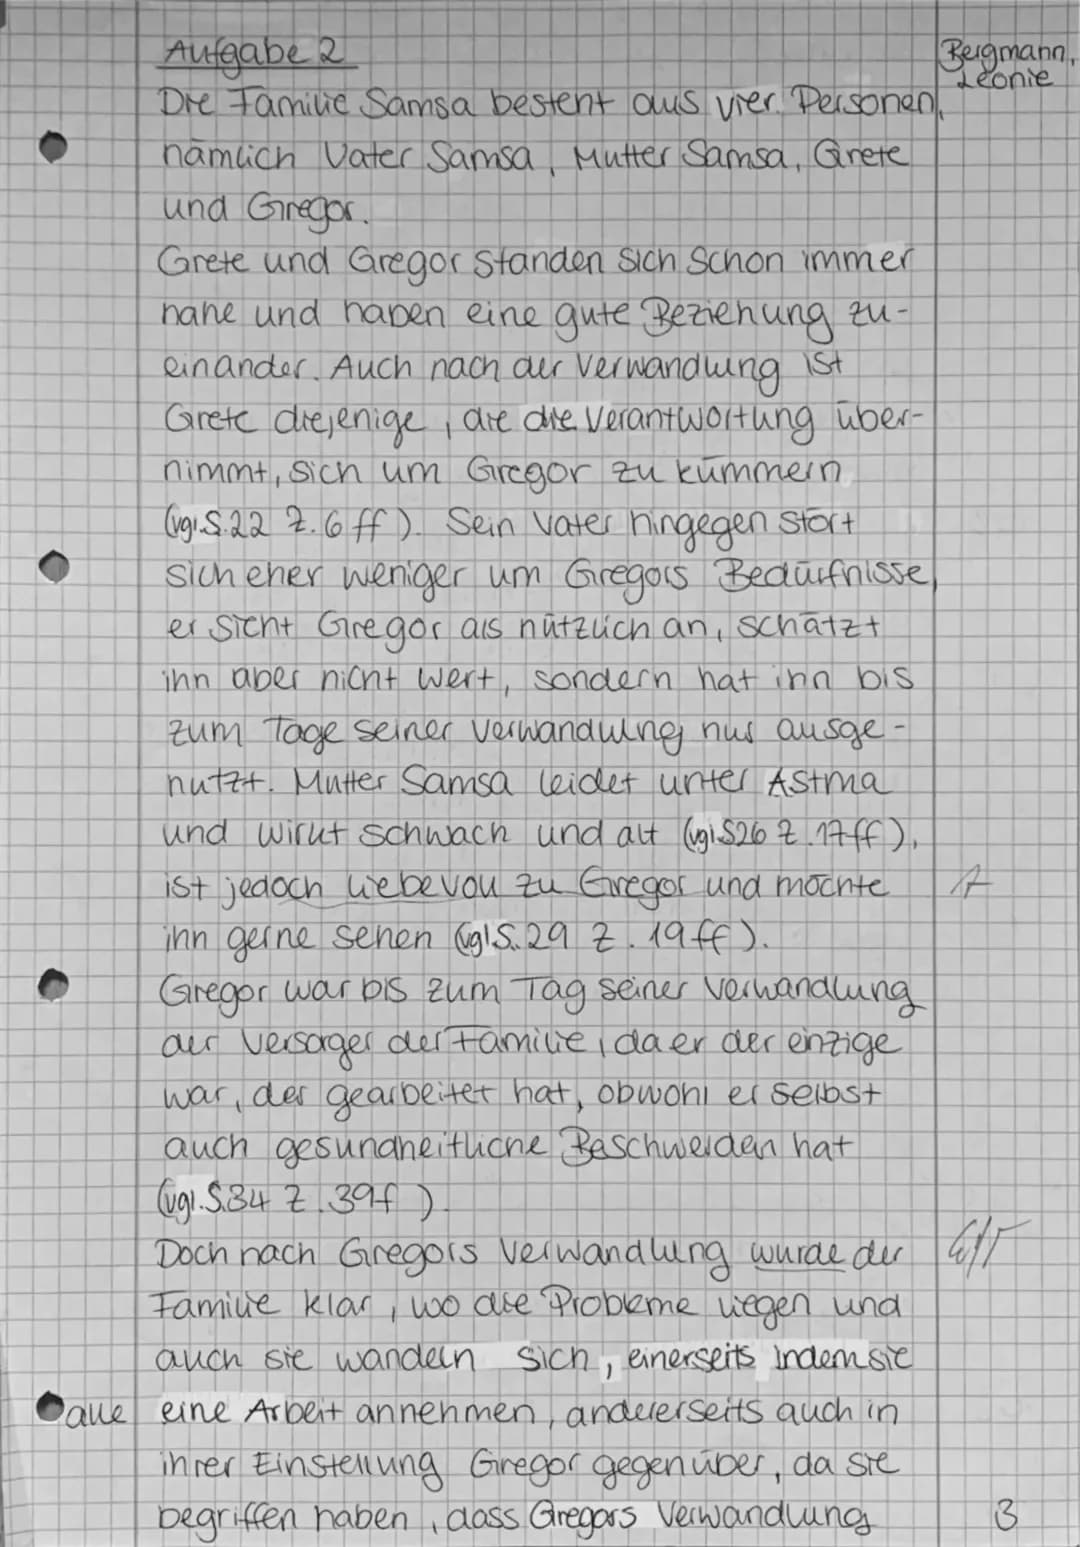 Aufgabe 2
Bergmann,
Leonie
Die Familie Samsa besteht aus vier Personen,
nämlich Vater Samsa, Mutter Samsa, Grete
und Gregor.
Grete und Gregor standen sich schon immer
nahe und haben eine gute Beziehung zu-
einander. Auch nach der Verwandlung ist
Grete diejenige, die die Verantwortung über-
nimmt, sich um Gregor zu kümmern
(vgl. S. 22 Z. 6 ff). Sein Vater hingegen stört
sich eher weniger um Gregors Bedürfnisse,
er sieht Gregor als nützlich an, schätzt
ihn aber nicht wert, sondern hat ihn bis
zum Tage seiner Verwandlung nur ausge-
nutzt. Mutter Samsa leidet unter Astma
und wirkt schwach und alt (vgl S26 Z. 17ff),
ist jedoch liebevoll zu Gregor und möchte A
ihn gerne sehen (vgl S. 29 Z. 19ff).
Gregor war bis zum Tag seiner Verwandlung
der Versorger der Familie, da er der einzige
war, der gearbeitet hat, obwohl er selbst
auch gesundheitliche Beschwerden hat
(vgl. S. 34 Z. 39f).
Doch nach Gregors Verwandlung wurde der
Familie klar, wo die Probleme liegen und
auch sie wandeln sich, einerseits indem sie
alle eine Arbeit annehmen, andererseits auch in
ihrer Einstellung Gregor gegenüber, da sie
begriffen haben, dass Gregors Verwandlung
3